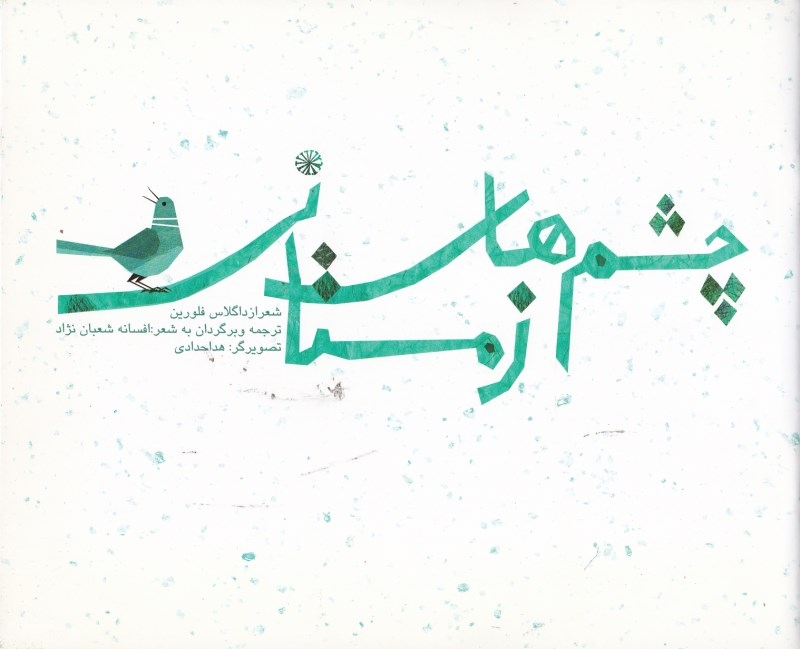 چشم های
زمستانی
شعرازداگلاس فلورین
ترجمه وبرگردان به شعر:افسانه شعبان نژاد
تصویرگر: هداحدادی